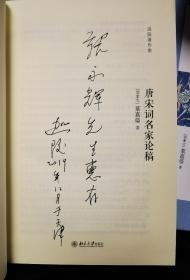 迦陵著作集
唐宋词名家论稿
[加拿大] 叶嘉莹 著
北京大学出版社
张永辉先生惠存
迦陵
2019年12月于天津